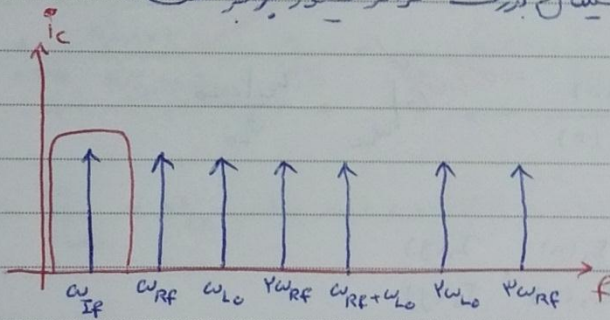 i_c
ω_If ω_Rf ω_Lo ۲ω_Rf ω_Rf+ω_Lo ۲ω_Lo ۳ω_Rf f